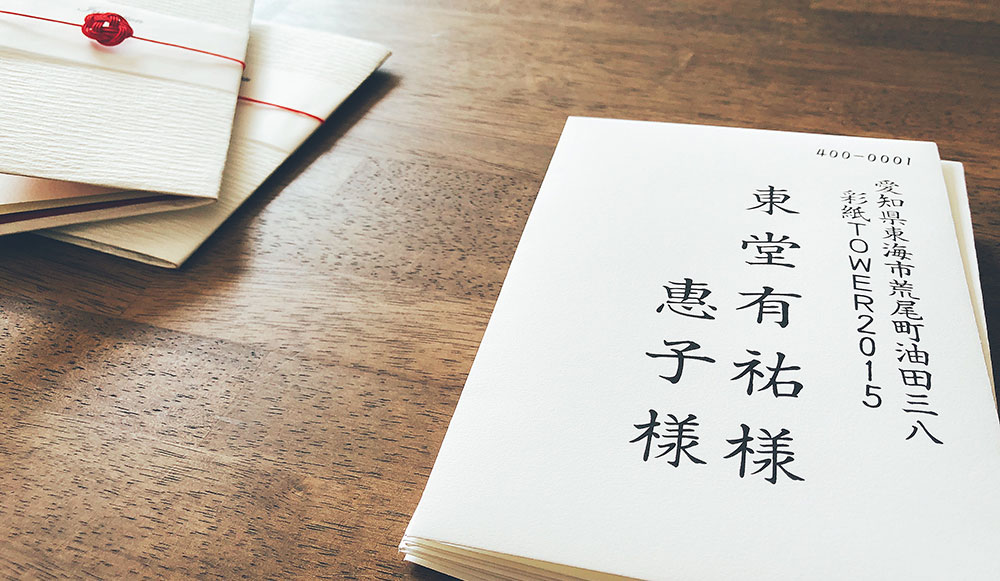 400-0001
愛知県東海市荒尾町油田三八
彩紙TOWER2015
東堂有祐様
惠子様